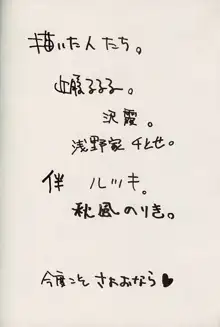 描いた人たち。
沢霞。
浅野家 ちとせ。
伴 ルツキ。
秋風のりき。
今度こそ さよおなら♥